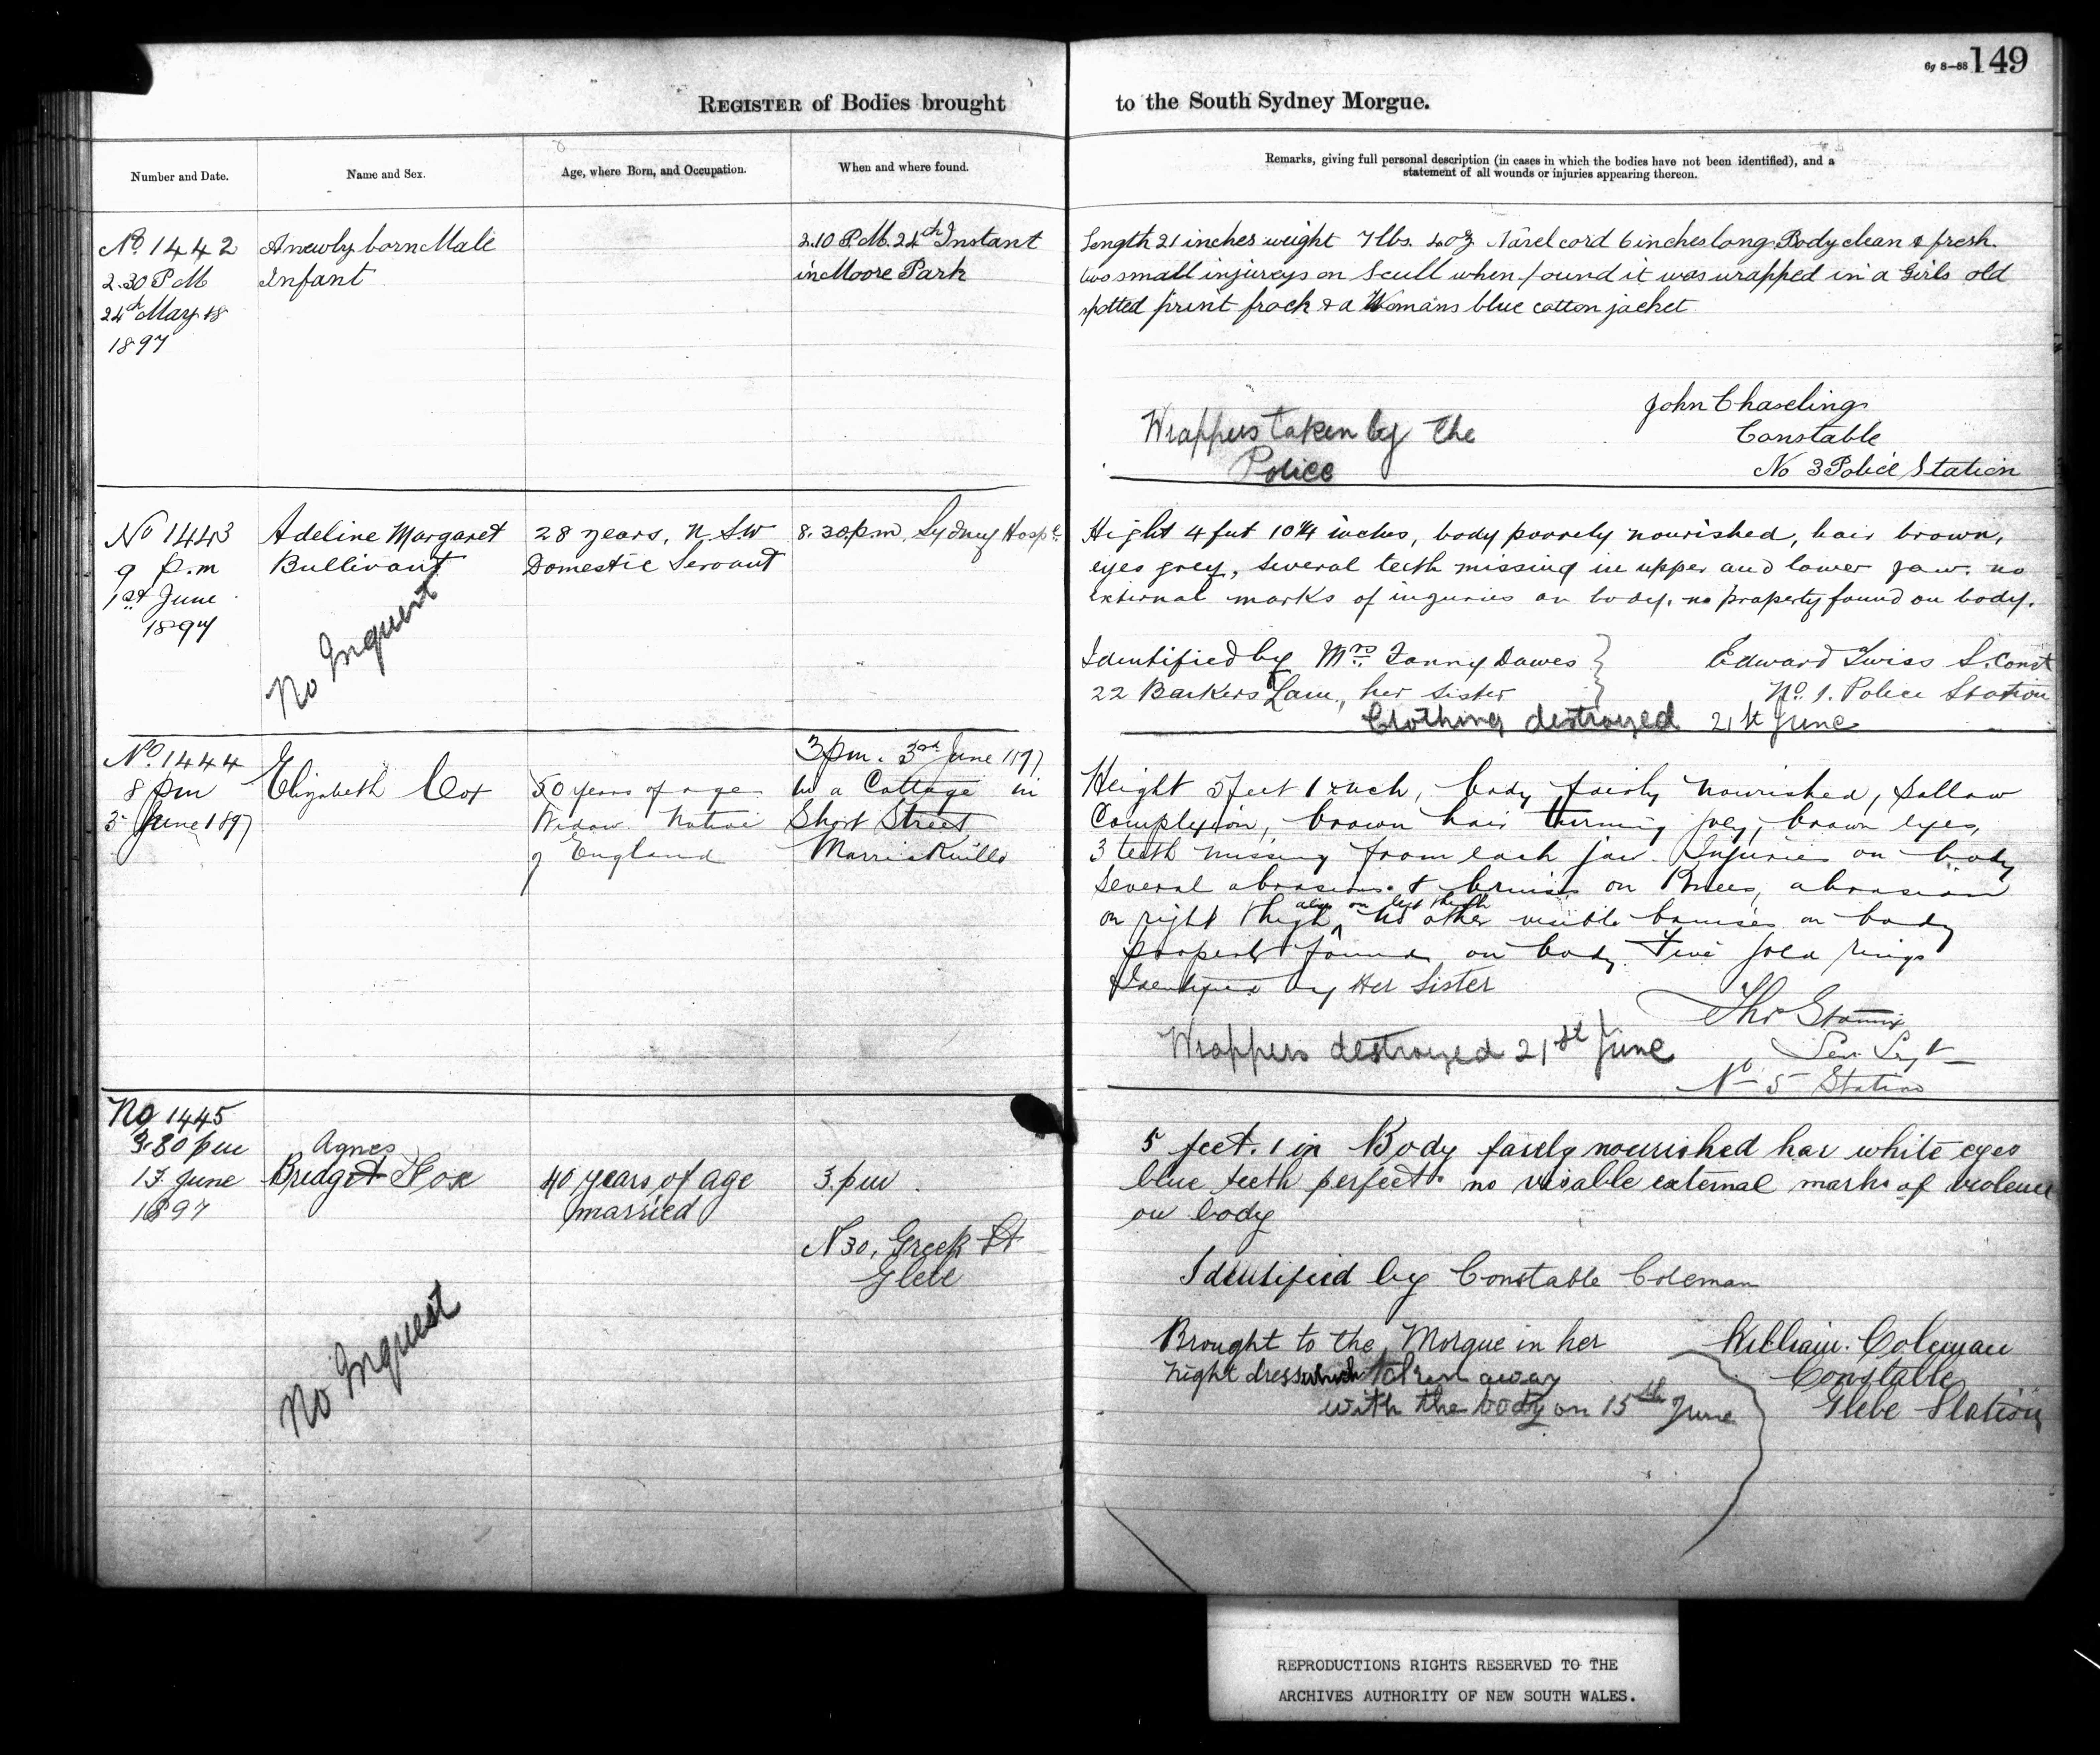 149
REGISTER of Bodies brought to the South Sydney Morgue.
Number and Date.
Name and Sex.
Age, where Born, and Occupation.
When and where found.
Remarks, giving full personal description (in cases in which the bodies have not been identified), and a
statement of all wounds or injuries appearing thereon.
No 1442
2.30 P M
24th May
1897
A newly born Male
Infant
2.10 P.M. 24th Instant
in Moore Park
Length 21 inches weight 7 lbs. 40z Navel cord 6 inches long Body clean & fresh.
two small injureys on Scull when found it was wrapped in a Girls old
spotted print frock & a Womans blue cotton jacket
Wrappers taken by the
Police
John Chaseling
Constable
No 3 Police Station
No 1443
9 p.m
1st June
1897
Adeline Margaret
Bullivant
No Inquest
28 years, N.S.W
Domestic Servant
8.30 pm, Sydney Hospl.
Height 4 feet 10 1/4 inches, body poorely nourished, hair brown,
eyes grey, several teeth missing in upper and lower jaw. no
external marks of injuries on body. no property found on body.
Identified by Mrs Fanny Dawes
22 Barkers Lane, her sister
Edward Twiss S. Const
No. 1. Police Station
Clothing destroyed 21st June
No. 1444
8 pm
3 June 1897
Elizabeth Cox
50 years of age
Widow Native
of England
3 pm. 3rd June 1897
in a Cottage in
Short Street
Marrickville
Height 5 feet 1 inch, body fairly nourished, sallow
Complexion, brown hair turning grey, brown eyes,
3 teeth missing from each jaw. Injuries on body
Several abrasions & bruises on Knees, abrasion
on right thigh, also on left thigh No other visible bruises on body
property found on body gold rings
Identified by Her Sister
Wrappers destroyed 21st June
Sen Sergt
No 5 Station
No 1445
3.30 pm
13 June
1897
Agnes
Bridget Fox
No Inquest
40 years of age
married
3. pm.
N 30, Greek St
Glebe
5 feet. 1 in Body farely nourished har white eyes
blue teeth perfect no visable external marks of violence
on body
Identified by Constable Coleman
Brought to the Morgue in her
night dress which taken away
with the body on 15th June
William. Coleman
Constable
Glebe Station
REPRODUCTIONS RIGHTS RESERVED TO THE
ARCHIVES AUTHORITY OF NEW SOUTH WALES.